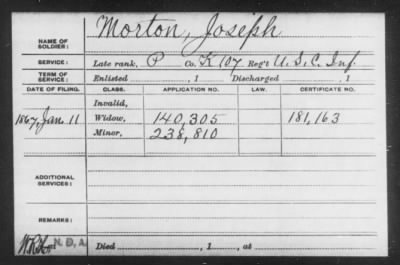 NAME OF SOLDIER: Morton, Joseph
SERVICE: Late rank, P Co. K 107 Reg't U. S. C. Inf.
TERM OF SERVICE: Enlisted , 1 Discharged , 1
DATE OF FILING. CLASS. APPLICATION NO. LAW. CERTIFICATE NO.
Invalid,
1867, Jan. 11 Widow, 140,305 181,163
Minor, 238,810
ADDITIONAL SERVICES:
REMARKS:
N. D. A. Died , 1 , at